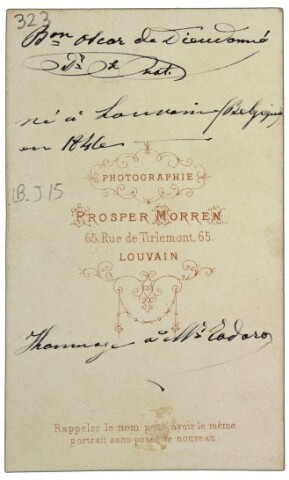 323
Bon Oscar de Dieudonné
Dr
né à Louvain (Belgique)
en 1846
B.J 15
PHOTOGRAPHIE
PROSPER MORREN
65, Rue de Tirlemont, 65.
LOUVAIN
Hommage à Mr Todaro
Rappeler le nom pour avoir le même
portrait sans poser de nouveau.